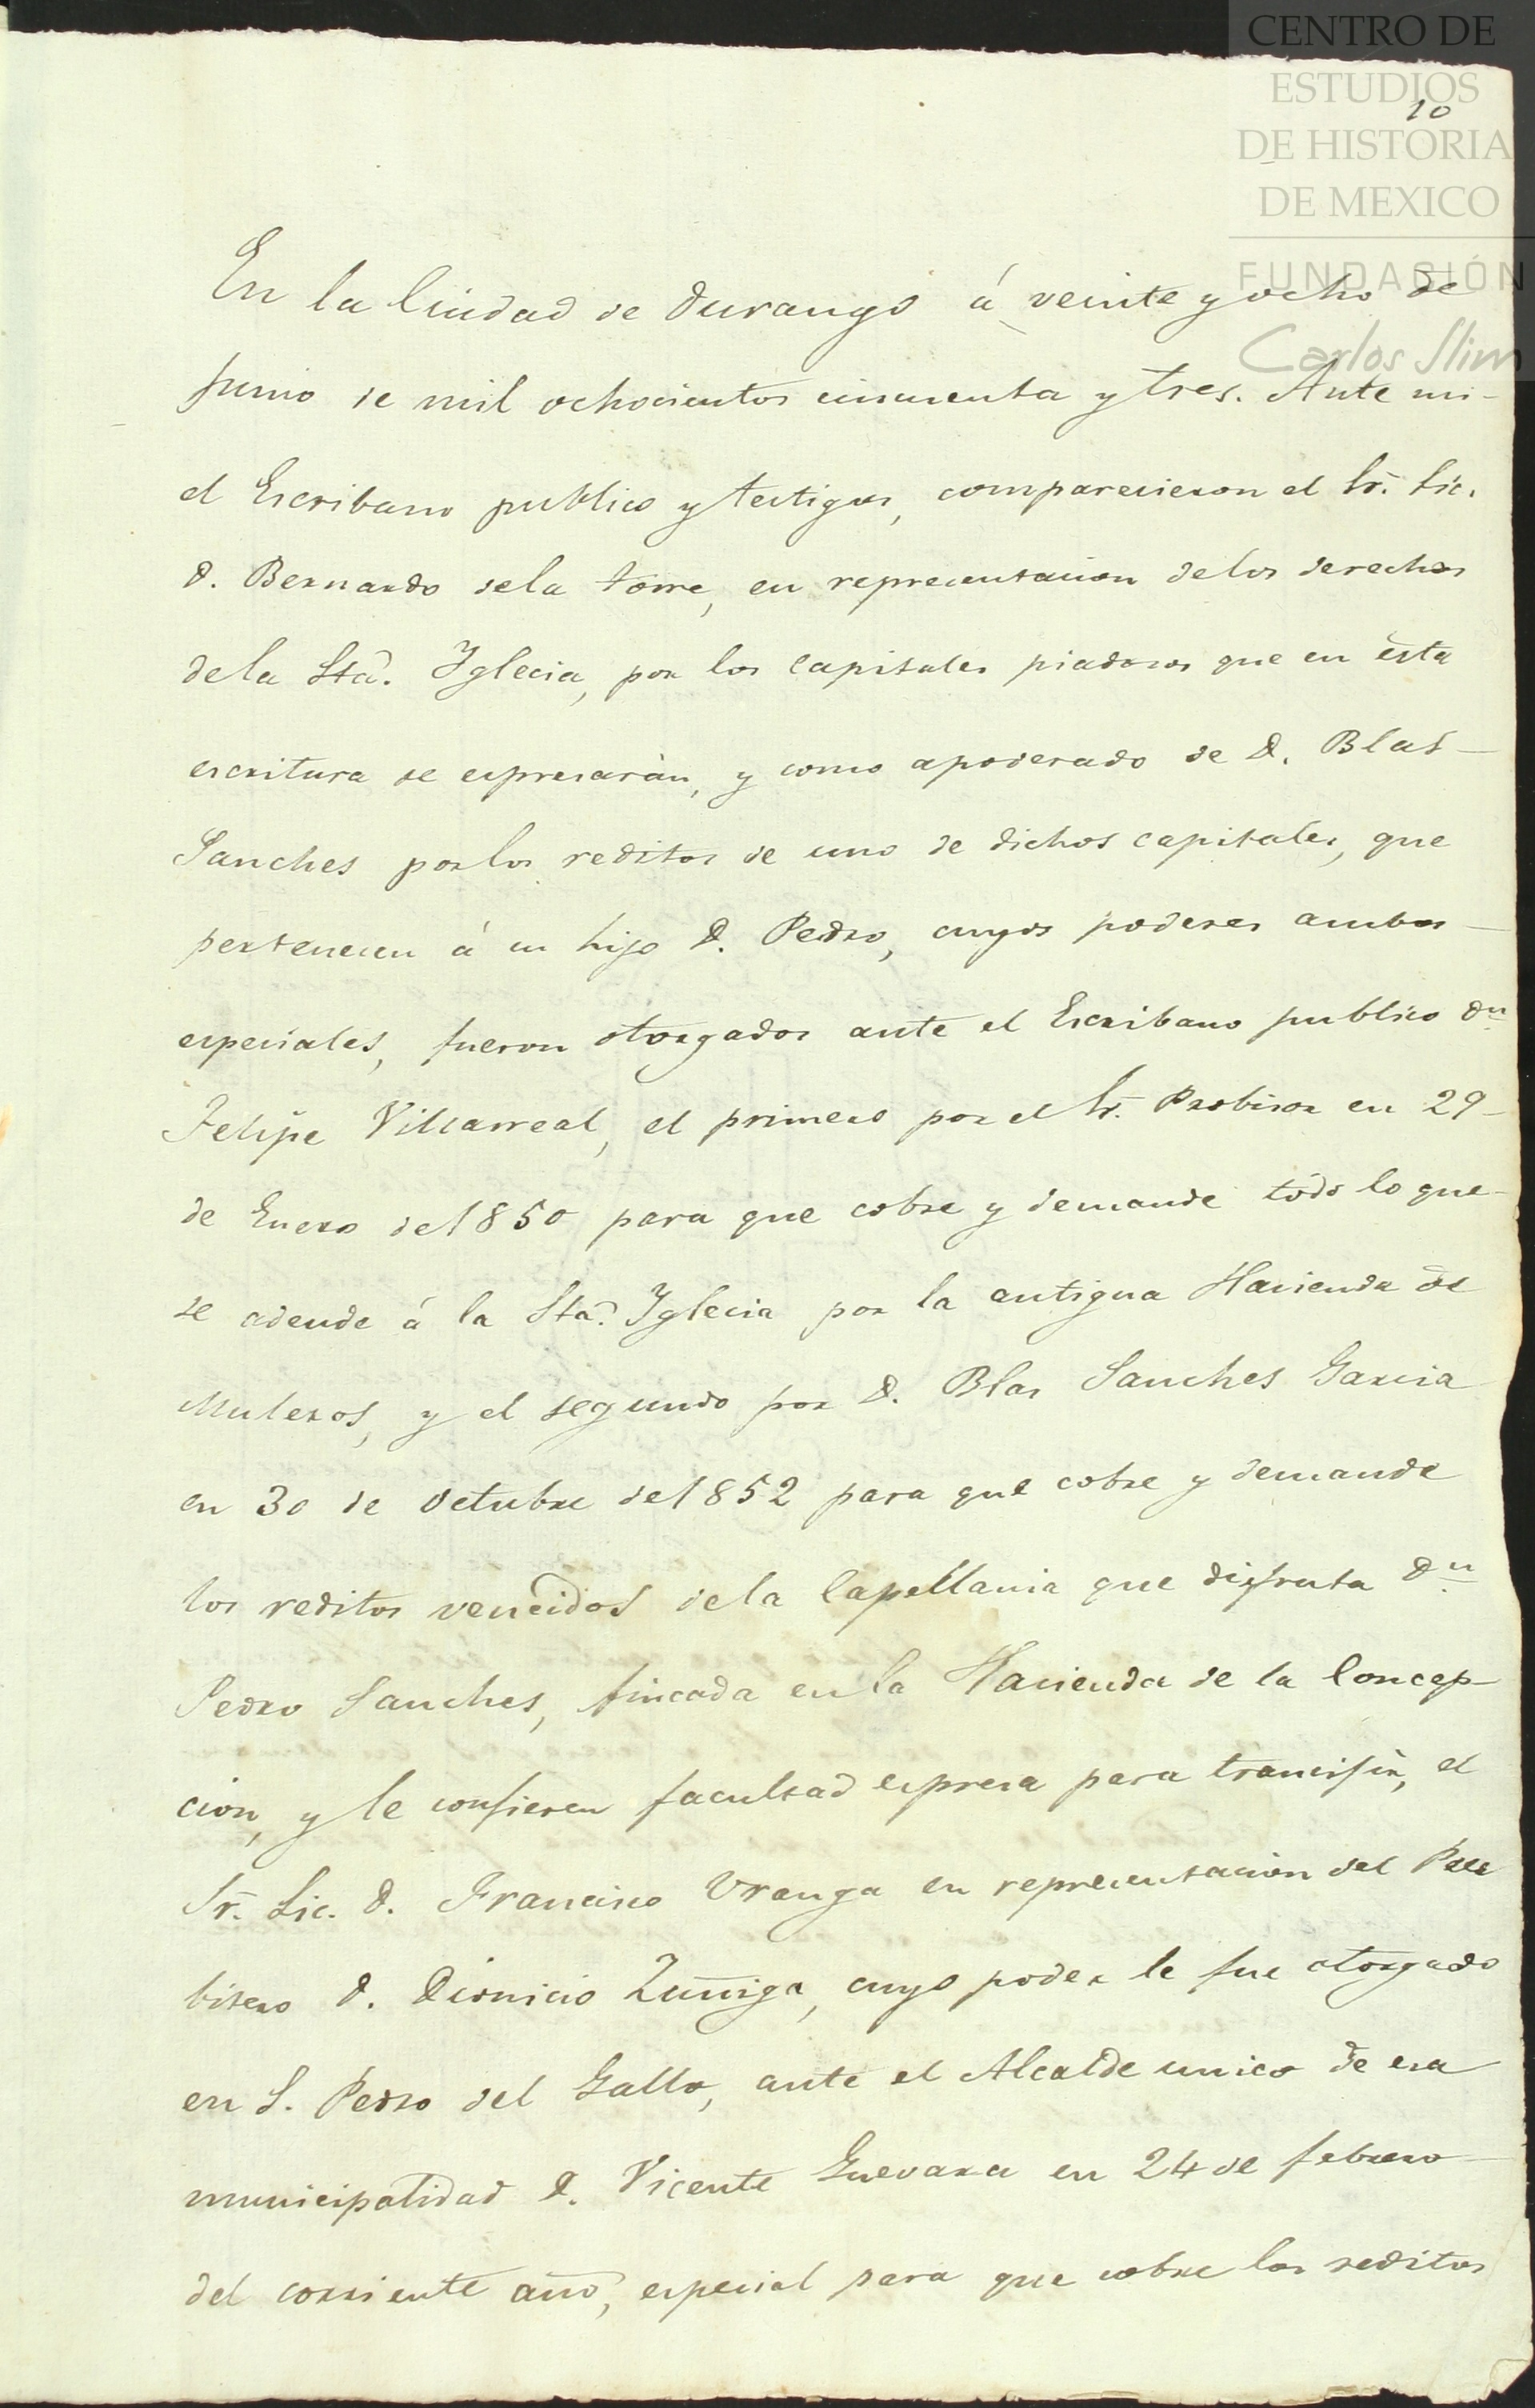 CENTRO DE
ESTUDIOS
10
DE HISTORIA
DE MEXICO
FUNDACIÓN
Carlos Slim
En la Ciudad de Durango á veinte y ocho de
Junio de mil ochocientos cincuenta y tres. Ante mi-
el Escribano publico y testigos, comparecieron el Sr. Lic.
D. Bernardo dela torre, en reprecentacion delos derechos
dela Sta. Yglecia, por los capitales piadosos que en ésta
escritura se espresarán, y como apoderado de D. Blas-
Sanches por los reditos de uno de dichos capitales, que
pertenecen á su hijo D. Pedro, cuyos poderes ambos-
especiales, fueron otorgados ante el Escribano publico Dn
Felipe Villarreal, el primero por el Sr. Probisor en 29-
de Enero de 1850 para que cobre y demande todo lo que-
se adeude á la Sta. Yglecia por la antigua Hacienda de
Muleros, y el segundo por D. Blas Sanches Garcia
en 30 de Octubre de 1852 para que cobre y demande
los reditos vencidos dela Capellania que disfruta Dn
Pedro Sanches, fincada en la Hacienda de la Concep-
cion, y le confieren facultad espresa para trancijir, el
Sr. Lic. D. Francisco Uranga en reprecentacion del Pres
bitero D. Dionicio Zuñiga, cuyo poder le fue otorgado
en S. Pedro del Gallo, ante el Alcalde unico de esa
municipalidad D. Vicente Guevara en 24 de febrero-
del corriente año, especial para que cobre los reditos